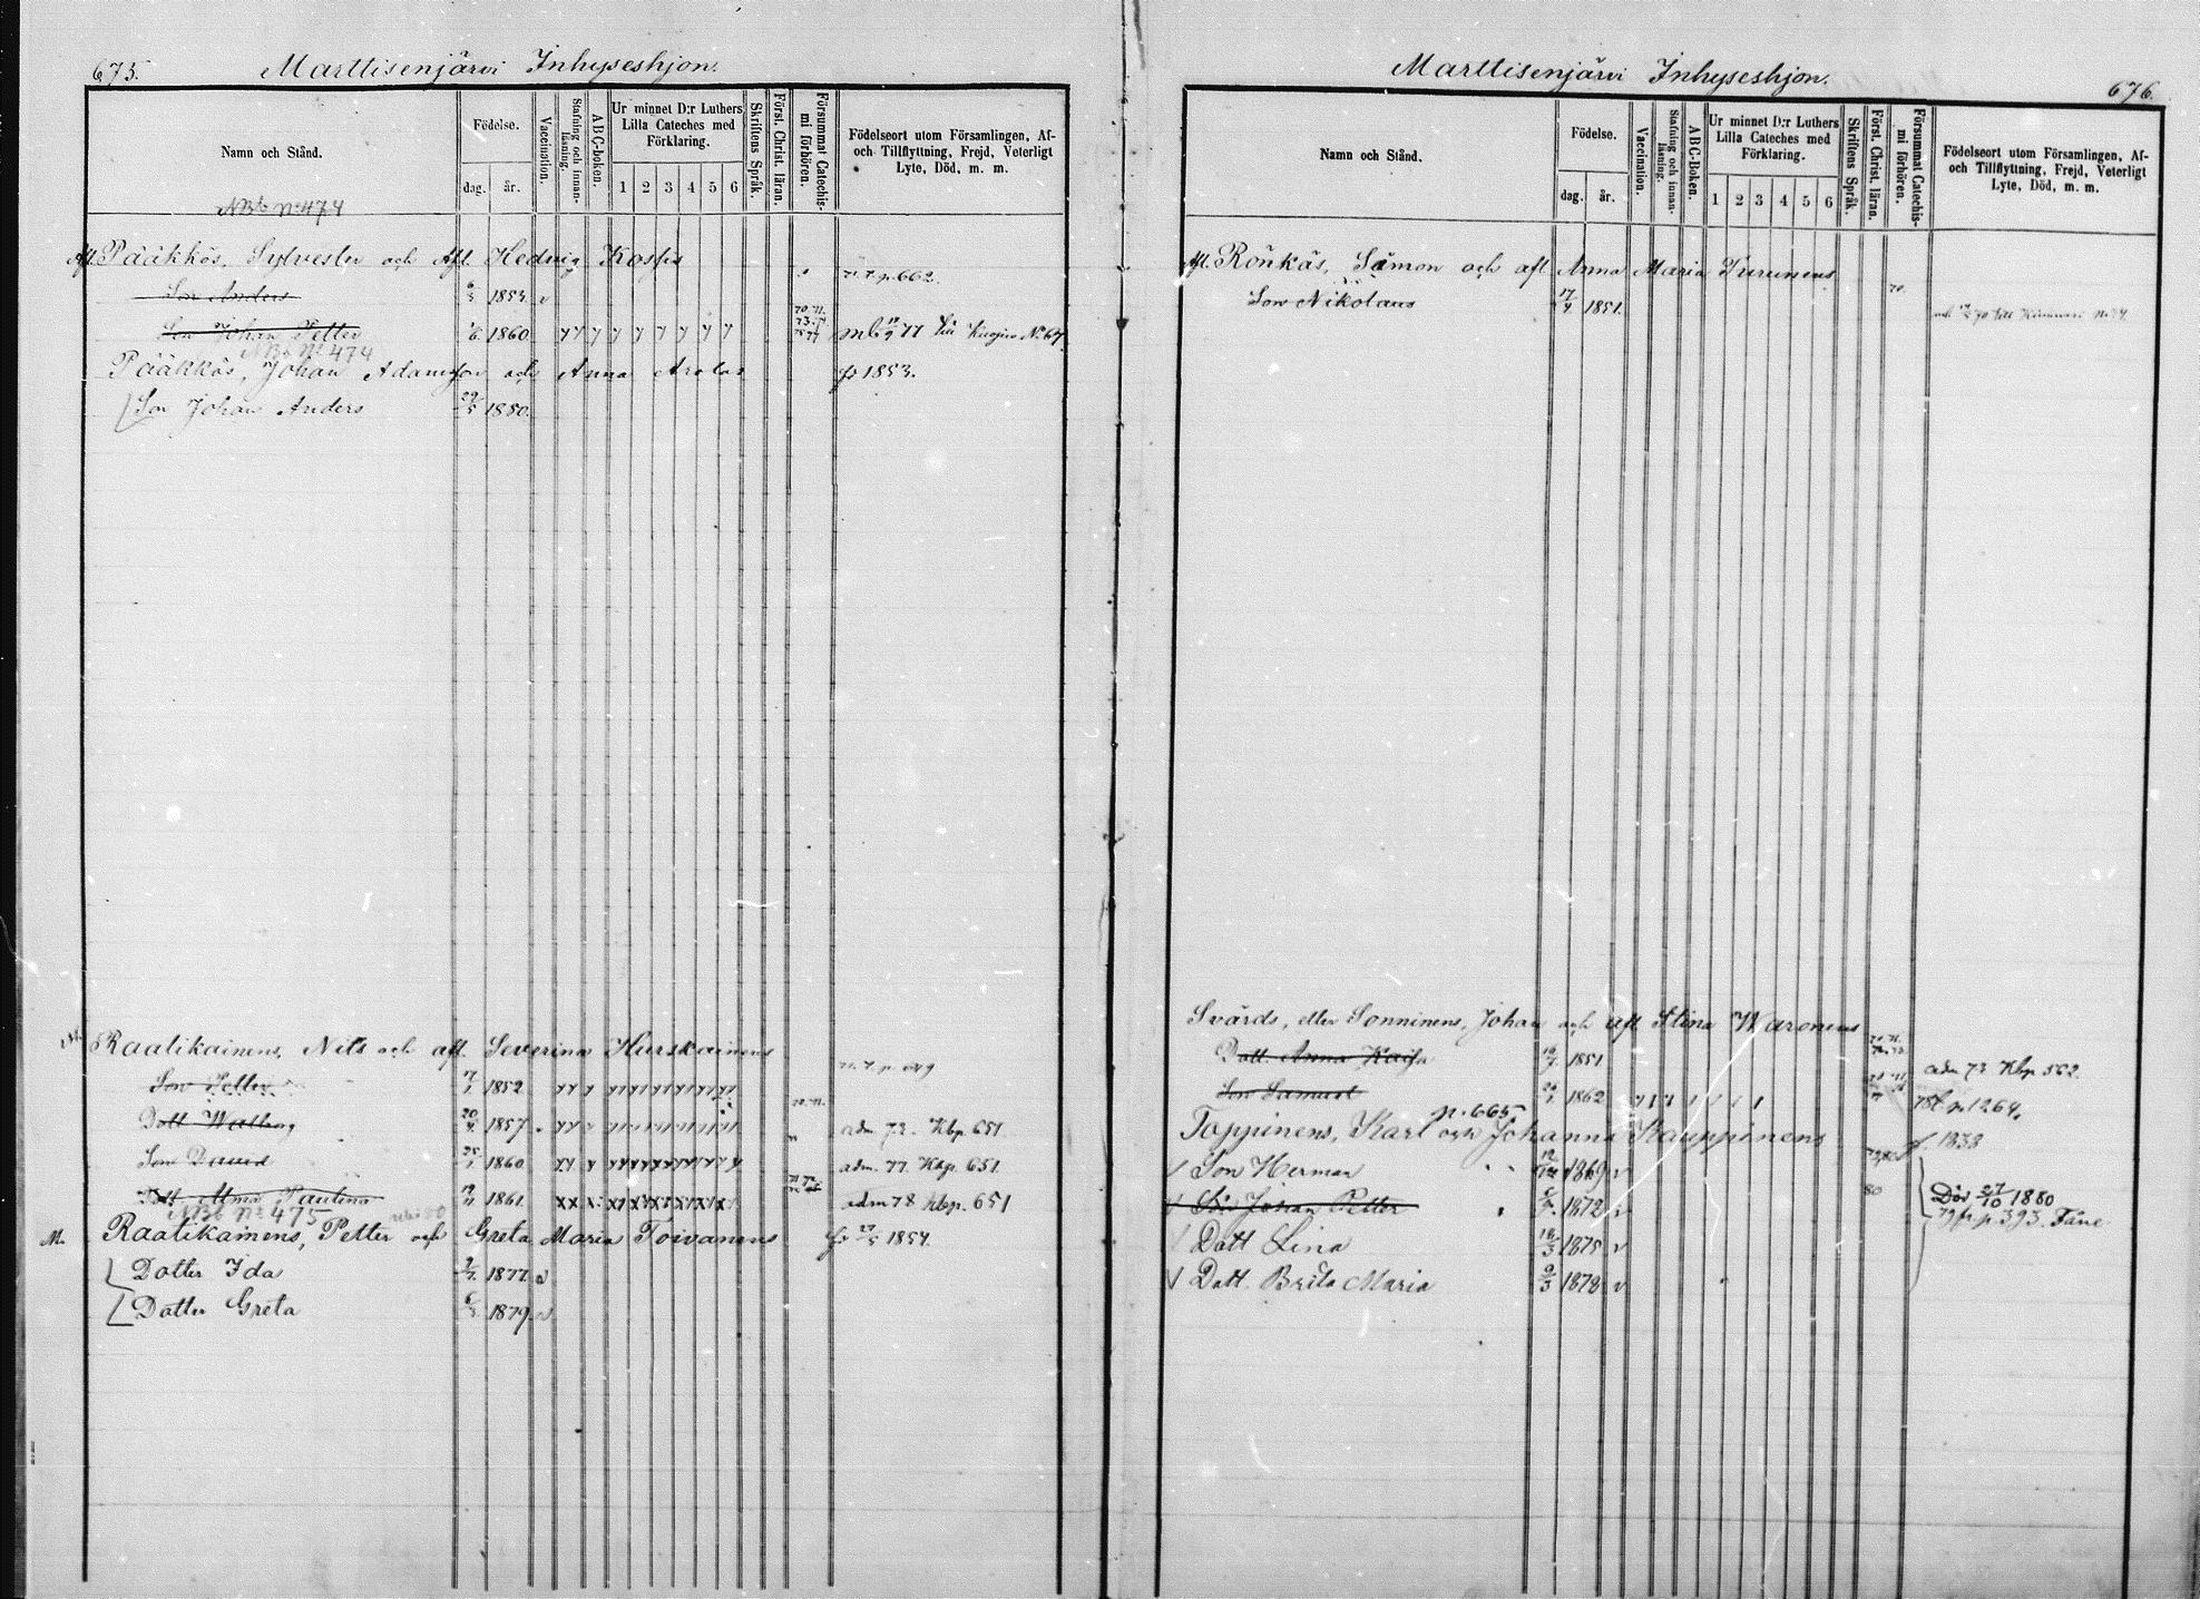 675. Marttisenjärvi Inhyseshjon.
Namn och Stånd.
Födelse.
dag. år.
Vaccination.
Stafning och innan-läsning.
ABC-boken.
Ur minnet D:r Luthers Lilla Cateches med Förklaring.
1 2 3 4 5 6
Skriftens Språk.
Först. Christ. läran.
Försummat Catechis-mi förhören.
Födelseort utom Församlingen, Af- och Tillflyttning, Frejd, Veterligt Lyte, Död, m. m.
NBb No 474
Afl. Pääkkös, Sylvester och Afl. Hedvig
p. 662.
Son Anders 1853
Son Johan Petter 1860 No 67
NBb No 474
Pääkkös, Johan Adamson och Anna Arolas 1853.
Son Johan Anders 29/5 1880.
Raatikainens, Nils och afl. Severina Hurskainens
Son Petter 1852
Dott Walborg 1857 adm 72. Kbp. 651
Son David 1860 adm. 77 Kbp. 651
Dott Alma Paulina 1861 adm 78 kbp. 651
NBb No 475
M. Raatikainens, Petter och Greta Maria Toivanens 1854.
Dotter Ida 1877
Dotter Greta 1879
Marttisenjärvi Inhyseshjon. 676.
Namn och Stånd.
Födelse.
dag. år.
Vaccination.
Stafning och innan-läsning.
ABC-Boken.
Ur minnet D:r Luthers Lilla Cateches med Förklaring.
1 2 3 4 5 6
Skriftens Språk.
Först. Christ. läran.
Försummat Catechis-mi förhören.
Födelseort utom Församlingen, Af- och Tillflyttning, Frejd, Veterligt Lyte, Död, m. m.
Afl. Rönkäs, Simon och afl Anna Maria Turunens
Son Nikolaus 17/4 1851. 70.
Svärds, eller Sonninens, Johan och afl Stina Waronens
Dott. Anna Kaisa 1851 adm 73 Kbp 562.
Son Samuel 1862 p. 1264.
p. 665
Toppinens, Karl och Johanna Kauppinens 1838
Son Herman 1869
Son Johan Petter 1872 80 Död 27/10 1880
p 393.
Dott Lina 18/3 1875
Dott. Brita Maria 9/3 1878